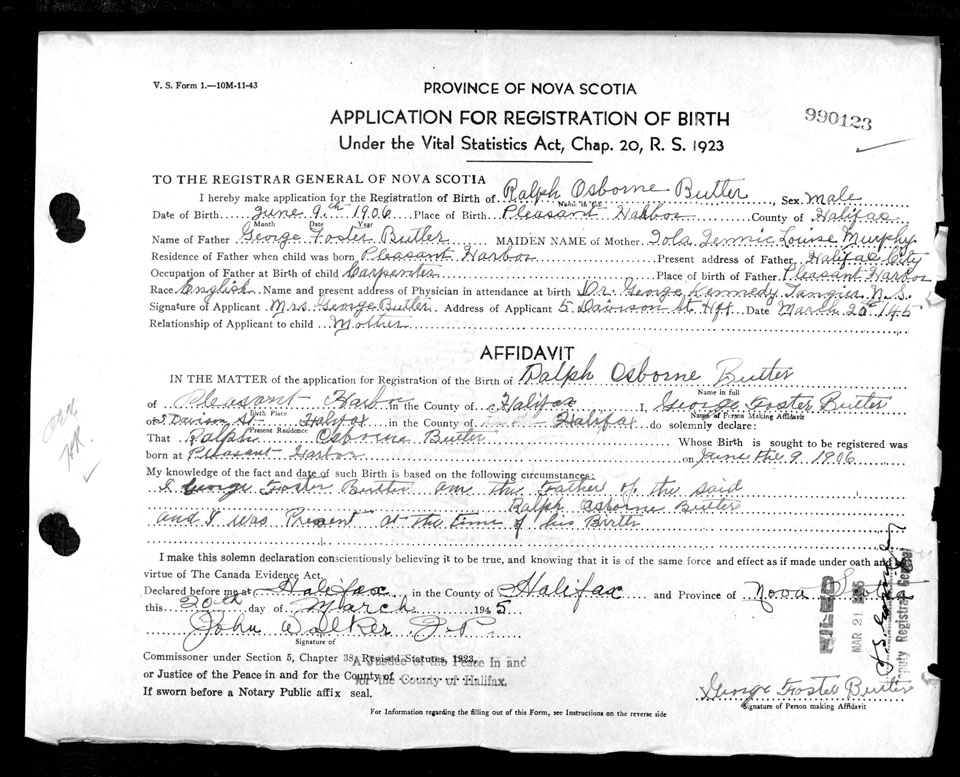 V. S. Form 1.—10M-11-43
PROVINCE OF NOVA SCOTIA
APPLICATION FOR REGISTRATION OF BIRTH
990123
Under the Vital Statistics Act, Chap. 20, R. S. 1923
TO THE REGISTRAR GENERAL OF NOVA SCOTIA
I hereby make application for the Registration of Birth of Ralph Osborne Butler Sex male
Name in full
Date of Birth June 9th 1906 Place of Birth Pleasant Harbor County of Halifax
Month Date Year
Name of Father George Foster Butler MAIDEN NAME of Mother Iola Jennie Louise Murphy
Residence of Father when child was born Pleasant Harbor Present address of Father Halifax City
Occupation of Father at Birth of child Carpenter Place of birth of Father Pleasant Harbor
Race English Name and present address of Physician in attendance at birth Dr. George Kennedy Tangier N.S.
Signature of Applicant Mrs. George Butler Address of Applicant 5 Davison St Hfx Date March 20th 1945
Relationship of Applicant to child Mother
AFFIDAVIT
IN THE MATTER of the application for Registration of the Birth of Ralph Osborne Butler
Name in full
of Pleasant Harbor in the County of Halifax I, George Foster Butler
Birth Place Name of Person Making Affidavit
of 5 Davison St Halifax in the County of Halifax do solemnly declare:
Present Residence
That Ralph Osborne Butler Whose Birth is sought to be registered was
born at Pleasant Harbor on June the 9 1906
My knowledge of the fact and date of such Birth is based on the following circumstances:
I George Foster Butler am the Father of the said
Ralph Osborne Butler
and I was Present at the time of his Birth
I make this solemn declaration conscientiously believing it to be true, and knowing that it is of the same force and effect as if made under oath and by
virtue of The Canada Evidence Act.
Declared before me at Halifax in the County of Halifax and Province of Nova Scotia
this 20th day of March 1945
John Walker J.P.
Signature of
Commissioner under Section 5, Chapter 38, Revised Statutes, 1923.
A Justice of the Peace in and
or Justice of the Peace in and for the County of
for the County of Halifax.
If sworn before a Notary Public affix seal.
FILED
MAR 21 1945
Deputy Registrar General
George Foster Butler
Signature of Person making Affidavit
For Information regarding the filling out of this Form, see Instructions on the reverse side